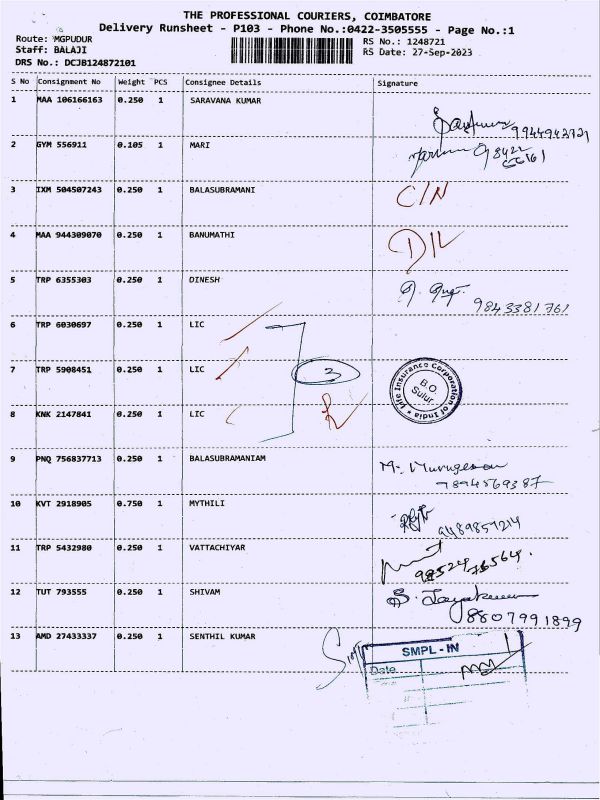 THE PROFESSIONAL COURIERS, COIMBATORE
Delivery Runsheet - P103 - Phone No.:0422-3505555 - Page No.:1
Route: MGPUDUR
Staff: BALAJI
DRS No.: DCJB124872101
RS No.: 1248721
RS Date: 27-Sep-2023
S No Consignment No Weight PCS Consignee Details Signature
1 MAA 106166163 0.250 1 SARAVANA KUMAR
9944942721
2 GYM 556911 0.105 1 MARI
3 IXM 504507243 0.250 1 BALASUBRAMANI C/N
4 MAA 944309070 0.250 1 BANUMATHI D/L
5 TRP 6355303 0.250 1 DINESH
9843381761
6 TRP 6030697 0.250 1 LIC
7 TRP 5908451 0.250 1 LIC 3
Life Insurance Corporation of India
B.O.
Sulur
8 KNK 2147841 0.250 1 LIC
9 PNQ 756837713 0.250 1 BALASUBRAMANIAM M. Murugesan
9894569387
10 KVT 2918905 0.750 1 MYTHILI
9489859214
11 TRP 5432980 0.250 1 VATTACHIYAR
98524 76564.
12 TUT 793555 0.250 1 SHIVAM S. Jayakumar
8807991899
13 AMD 27433337 0.250 1 SENTHIL KUMAR
SMPL - IN
Date